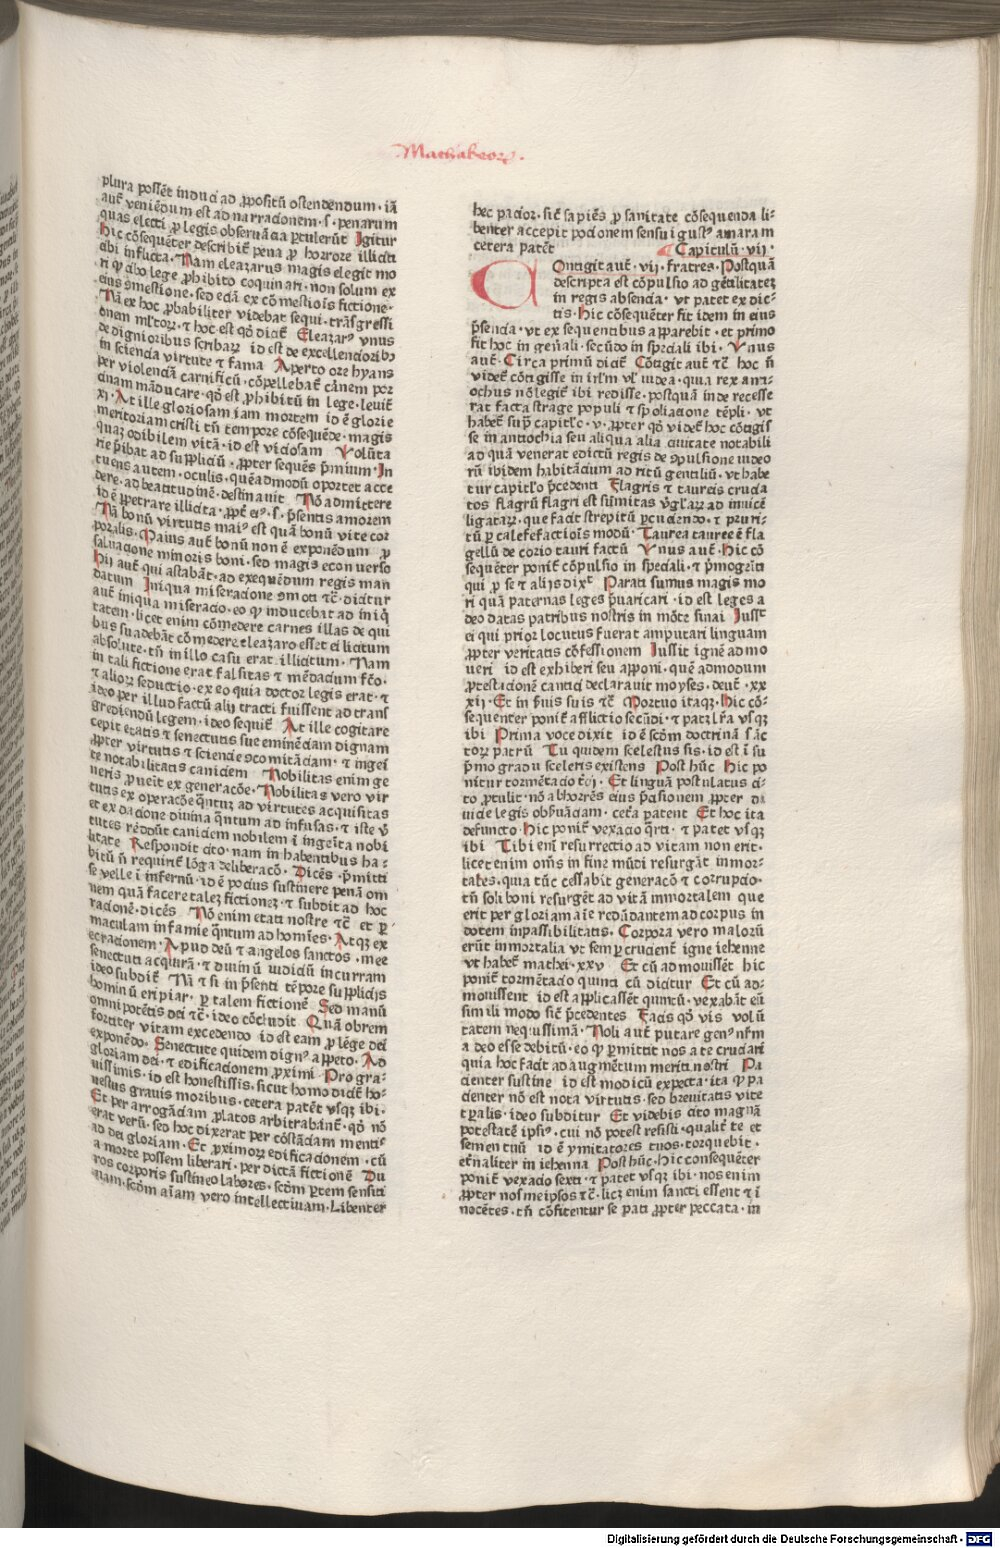 Machabeorꝝ.
plura possēt induci ad ꝓpositū ostendendum · iā
aut̄ veniēdum est ad narracionem · s · penarum
quas electi ꝓ legis obseruācia ꝑtulerūt Igitur
hic cōsequēter describit̄ pena ꝓ horrore illiciti
cibi inflicta · Nam eleazarus magis elegit mo
ri qͥ cibo lege ꝓhibito coquinari · non solum ex
eius ꝯmestione · sed eciā ex cōmestiois fictione ·
Nā ex hoc ꝓbabiliter videbat̄ sequi · trāsgressi
onem mltorꝝ · ⁊ hoc est qō dicit̄ Eleazarꝰ vnus
de dignioribus scribarꝝ id est de excellencioribꝰ
in sciencia virtute ⁊ fama Aperto ore hyans
per violenciā carnificū · cōpellebat̄ carnem por
cinam māducare · qō est ꝓhibitū in lege · leuit̄
xi · At ille gloriosam iam mortem id ē glorie
meritoriam cristi tn̄ tempore cōsequēde · magis
quaꝫ odibilem vitā · id est viciosam Volūta
rie p̄ibat ad suppliciū · ꝓpter sequēs p̄mium · In
tuens autem · oculis · quēadmodū oportet acce
dere · ad beatitudinē · destinauit Nō admittere
id ē ꝑpetrare illicita · ꝓpt̄ eiꝰ · s · p̄sentis amorem
Nā bonū virtutis maiꝰ est quā bonū vite cor
poralis · Maius aut̄ bonū non ē exponēdum ꝓ
saluacione minoris boni · sed magis econuerso
Hij aut̄ qui astabāt · ad exequēdum regis man
datum Iniqua miseracione ꝯmoti ⁊c̄ · dicitur
aut̄ iniqua miseracio · eo qͥ inducebat ad iniqͥ
tatem · licet enim cōmedere carnes illas de qui
bus suadebāt cōmedere eleazaro esset ei licitum
absolute · tn̄ in illo casu erat · illicitum · Nam
in tali fictione erat falsitas ⁊ mēdacium fc̄o ·
⁊ aliorꝝ seductio · ex eo quia doctor legis erat · ⁊
ideo per illud factū alij tracti fuissent ad trans
grediendū legem · ideo sequit̄ At ille cogitare
cepit etatis ⁊ senectutis sue eminēciam dignam
ꝓpter virtutis ⁊ sciencie ꝯcomitāciam · ⁊ ingei
te nobilitatis caniciem Nobilitas enim ge
neris ꝓueit̄ ex generacōe · Nobilitas vero vir
tutis ex operacōe qͣntuꝫ ad virtutes acquisitas
et ex dacione diuina qͣntum ad infusas · ⁊ iste v̄
tutes reddūt caniciem nobilem ī ingeīta nobi
litate Respondit cito · nam in habentibus ha-
bitū n̄ requirit̄ lōga deliberacō · Dicēs · p̄mitti
se velle ī infernū · id ē pocius sustinere penā om
nem quā facere taleꝫ fictioneꝫ · ⁊ subdit ad hoc
racionē · dicēs Nō enim etati nostre ⁊c̄ et ꝑ
maculam infamie qͣntum ad homīes · Atqꝫ ex
ecracionem · Apud deū ⁊ angelos sanctos · mee
senectuti acquirā · ⁊ diuinū iudiciū incurram
ideo subdit̄ Nā ⁊ si in p̄senti tēpore supplicijs
hominū eripiar · ꝑ talem fictionē Sed manū
omnipotētis dei ⁊c̄ · ideo cōcludit Quā obrem
fortiter vitam excedendo id est eam ꝓ lege dei
exponēdo · Senectute quidem dignꝰ appeto · Ad
gloriam dei · ⁊ edificacionem ꝓximi Pro gra-
uissimis · id est honestissis · sicut homo dicit̄ ho-
nestus grauis moribus · cetera patēt vsqꝫ ibi ·
Et per arrogāciam ꝓlatos arbitrabant̄ · qō nō
erat verū · sed hoc dixerat per cōstāciam mentiꝰ
ad dei gloriam · Et ꝓximorꝝ edificacionem · cū
a morte possem liberari · per dictā fictionē Du
ros corporis sustineo labores · scd̄m ꝑtem sensiti
uam · scd̄m aīam vero intellectiuam · Libenter
hec pacior · sic̄ sapiēs ꝓ sanitate cōsequenda li-
benter accepit pocionem sensui gustꝰ amaram
cetera patēt Capitulū · vij ·
COntigit aut̄ · vij · fratres · Postquā
descripta est cōpulsio ad gētilitateꝫ
in regis absencia · vt patet ex dic-
tis · Hic cōsequēter fit idem in eius
p̄sencia · vt ex sequentibus apparebit · et primo
fit hoc in gen̄ali · secūdo in speciali ibi · Vnus
aut̄ · Circa primū dicit̄ Cōtigit aut̄ ⁊c̄ hoc n̄
videt̄ cōtigisse in irlm̄ vl̄ iudea · quia rex anti-
ochus nō legit̄ ibi redisse · postquā inde recesse
rat facta strage populi ⁊ spoliacione tēpli · vt
habet̄ supͣ capitl̓o · v · ꝓpter qō videt̄ hoc cōtigis
se in antiochia seu aliqua alia ciuitate notabili
ad quā venerat edictū regis de ꝯpulsione iudeo
rū ibidem habitācium ad ritū gentiliū · vt habe
tur capitl̓o p̄cedenti Flagris ⁊ taureis crucia
tos flagrū flagri est sūmitas v̄gl̓arꝝ ad inuicē
ligatarꝝ · que facit strepitū ꝑcuciendo · ⁊ pruri-
tū ꝑ calefefactiōis modū · Taurea tauree ē fla
gellū de corio tauri factū Vnus aut̄ · Hic cō
sequēter ponit̄ cōpulsio in speciali · ⁊ p̄mogēiti
qui ꝓ se ⁊ alijs dixᷓ Parati sumus magis mo
ri quā paternas leges p̄uaricari · id est leges a
deo datas patribus nostris in mōte sinai Iussᷓ
ei qui prior locutus fuerat amputari linguam
ꝓpter veritatis cōfessionem Iussit ignē admo
ueri id est exhiberi seu apponi · quē admodum
ꝓtestacionē cantici declarauit moyses · deut̄ · xx
xij · Et in s̄uis suis ⁊c̄ Mortuo itaqꝫ · hic cō-
sequenter ponit̄ afflictio secūdi · ⁊ patꝫ lr̄a vsqꝫ
ibi Prima voce dixit id ē scd̄m doctrinā s̄ac
torꝝ patrū Tu quidem scelestus sis · id est ī su
p̄mo gradu sceleris existens Post hūc hic po
nitur tormētacio t̓cij · Et linguā postulatus ci-
to ꝓtulit · nō abhorrēs eius p̄cisionem ꝓpter di
uīe legis obẜuāciam · cet̓a patent Et hoc ita
defuncto · hic ponit̄ vexacio qͣrti · ⁊ patet vsqꝫ
ibi Tibi enī resurrectio ad vitam non erit ·
licet enim om̄s in fine mūdi resurgāt inmor-
tales · quia tūc cessabit generacō ⁊ corrupcio ·
tn̄ soli boni resurgēt ad vitā inmortalem que
erit per gloriam aīe redūdantem ad corpus in
dotem inpassibilitatis · Corpora vero malorū
erūt inmortalia vt semꝑ crucient̄ igne iehenne
vt habet̄ mathei · xxv Et cū admouissēt hic
ponit̄ tormētacio quinti cū dicitur Et cū ad-
mouissent id est applicassēt quintū · vexabāt eū
simili modo sic̄ p̄cedentes Facis qō vis volū
tatem nequissimā · Noli aut̄ putare genꝰ nr̄m
a deo esse debitū · eo qͥ ꝑmittit nos a te cruciari
quia hoc facit ad augmētum meriti nostri Pa
cienter sustine id est modicū expecta · ita qͥ pa
cienter nō est nota virtutis · sed breuitatis vite
tꝑalis · ideo subditur Et videbis cito magnā
potestatē ipsiꝰ · cui nō potest resisti · qualit̄ te et
semen tuū id ē ymitatores tuos · torquebit ·
et̄naliter in iehenna Post hūc · hic consequēter
ponit̄ vexacio sexti · ⁊ patet vsqꝫ ibi · nos enim
ꝓpter nosmeipsos ⁊c̄ · licꝫ enim sancti essent ⁊ ī
nocētes · tn̄ cōfitentur se pati ꝓpter peccata · in
Digitalisierung gefördert durch die Deutsche Forschungsgemeinschaft · DFG